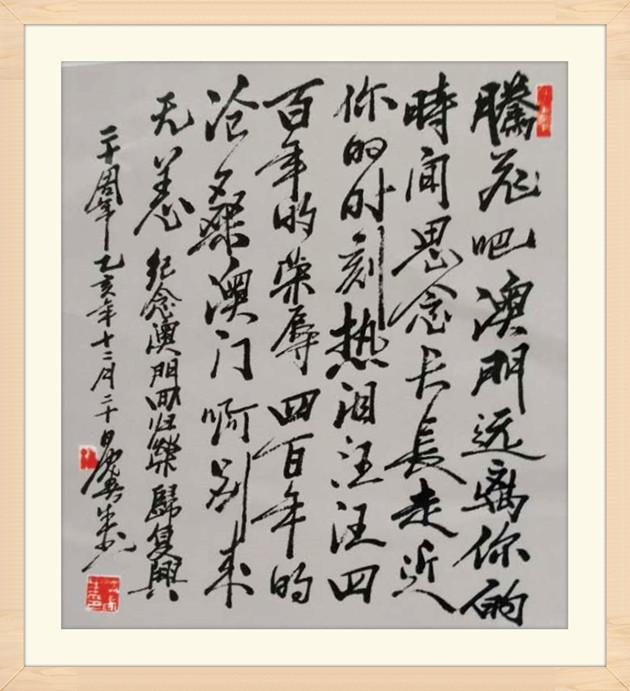 騰飛吧澳門远離你的
時间思念长長走近
你的时刻热泪汪汪四
百年的荣辱四百年的
沧桑澳门啊别来
无恙 纪念澳門回归榮歸复興
二十周年乙亥年十二月二十日